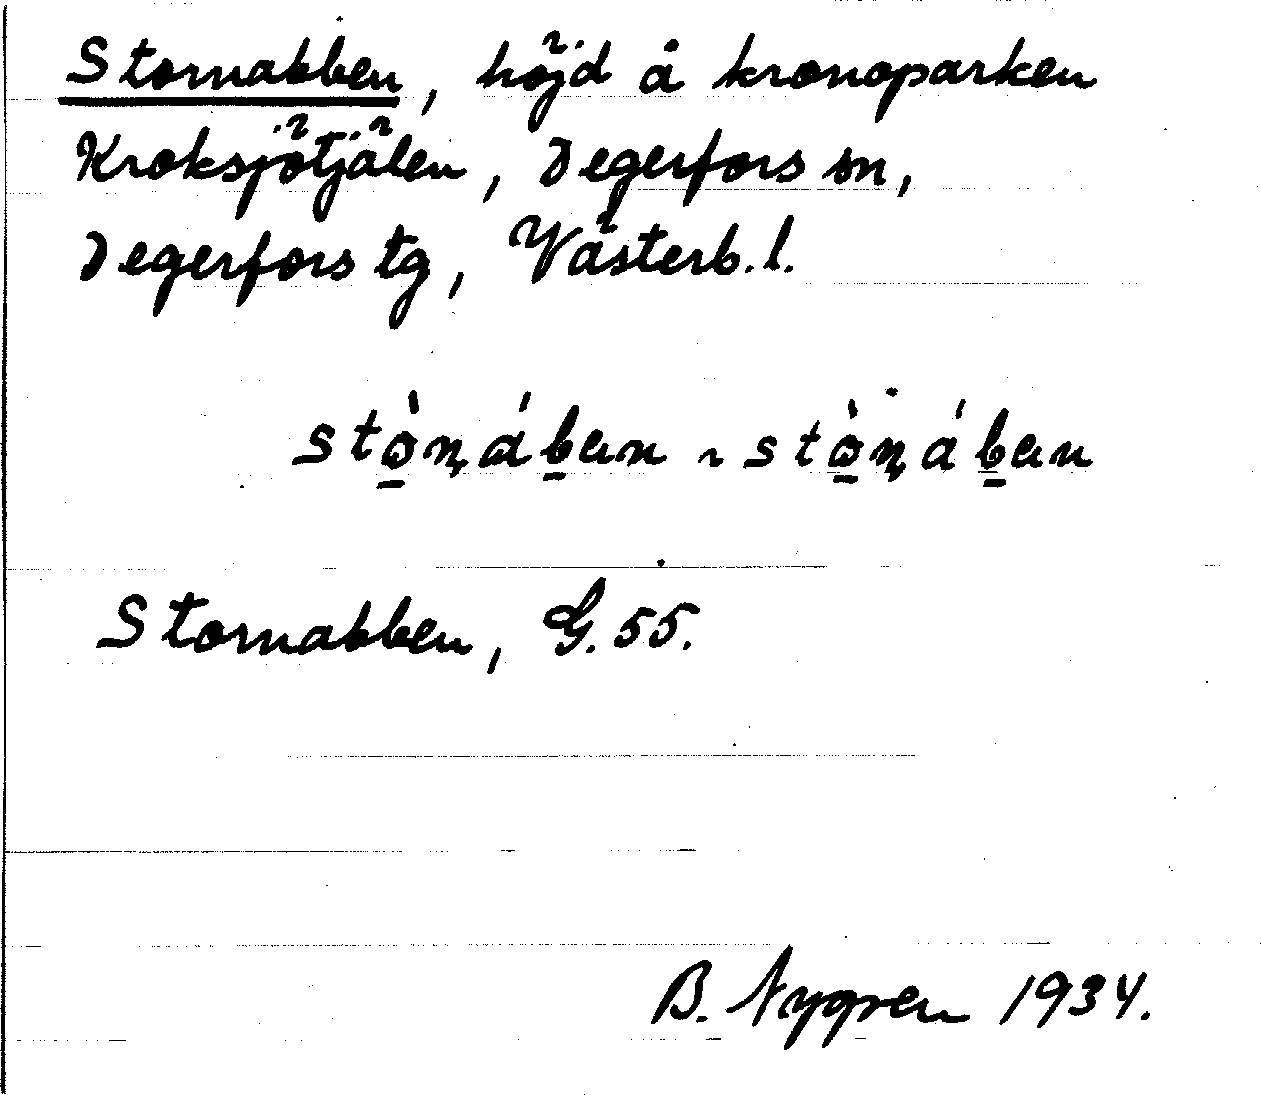 Stornabben, höjd å kronoparken
Kroksjötjälen, Degerfors sn,
Degerfors tg, Västerb. l.
stò̠ṇáb̠en ~ stò̠ṇáb̠en
Stornabben, G. 55.
B. Nygren 1934.